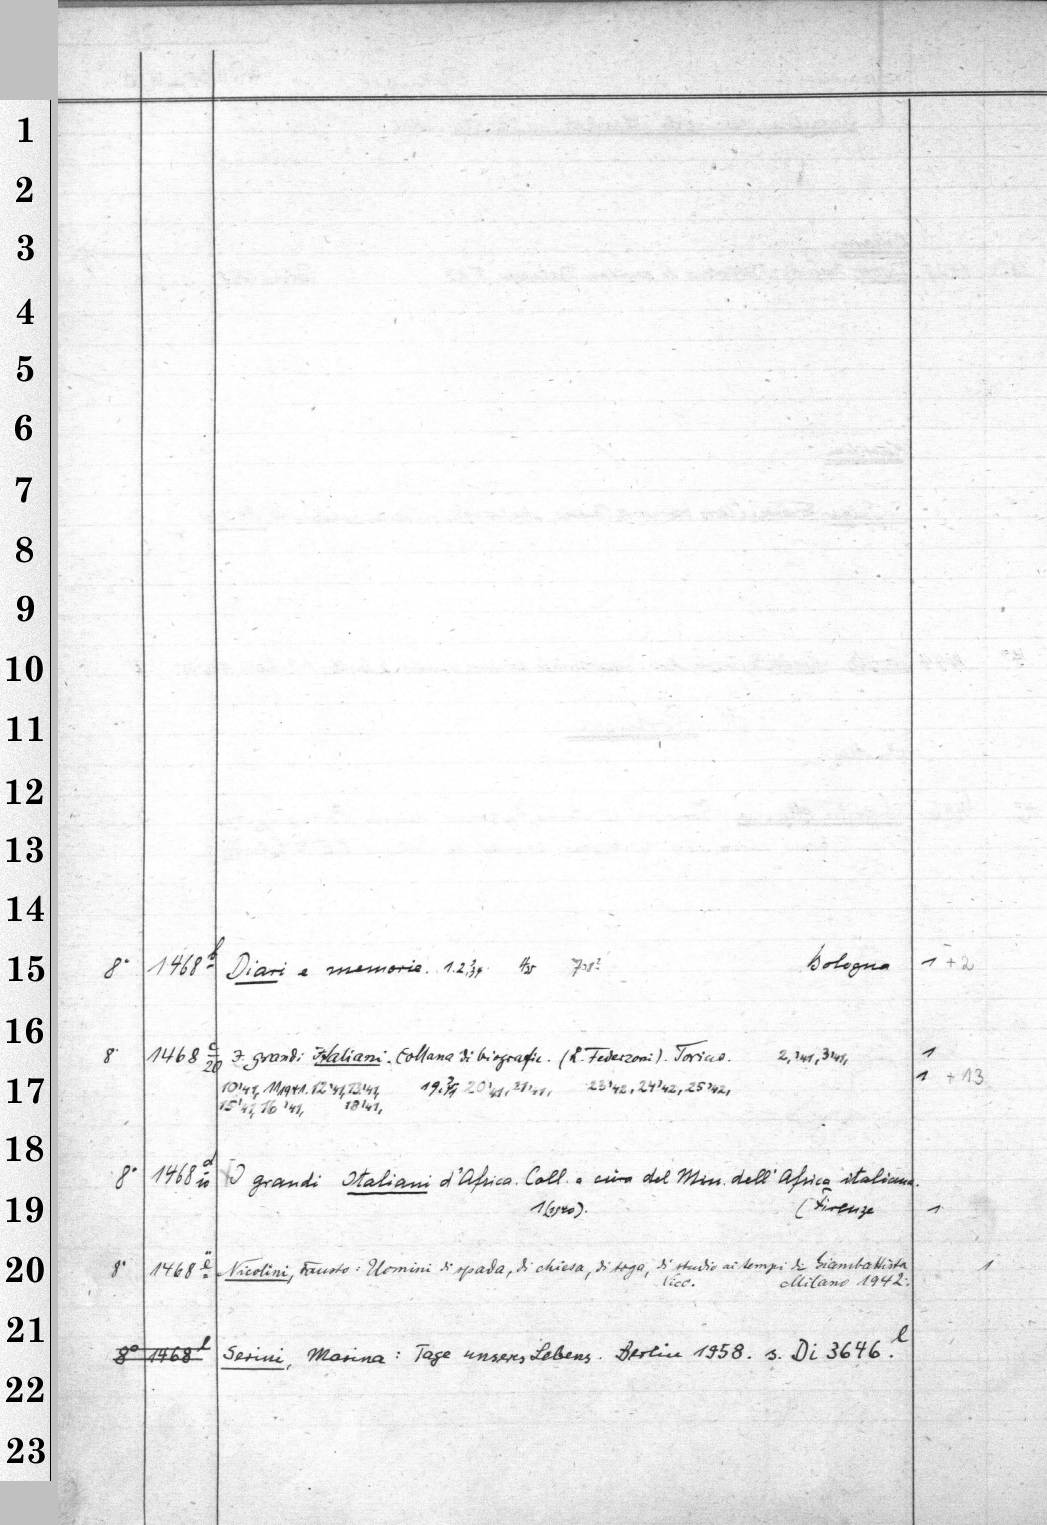 1
2
3
4
5
6
7
8
9
10
11
12
13
14
15 8° 1468 b Diari e memorie. 1.2. Bologna 1 + 2
16
8° 1468 c/20 I grandi Italiani. Collana di biografie. (L. Federzoni). Torino. 2,'41, 3'41, 1
17 10'41, 11,1941. 12'41, 13'41, 20'41, 21'41, 23'42, 24'42, 25'42, 1 + 13
15'41, 16'41, 18'41,
18 8° 1468 d/10 I grandi Italiani d'Africa. Coll. a cura del Min. dell'Africa italiana.
19 1(1940). (Firenze 1
20 8° 1468 e Nicolini, Fausto: Uomini di spada, di chiesa, di toga, di studio ai tempi di Giambattista 1
Vico. Milano 1942.
21
8° 1468 l Serini, Marina: Tage unseres Lebens. Berlin 1958. s. Di 3646 l.
22
23